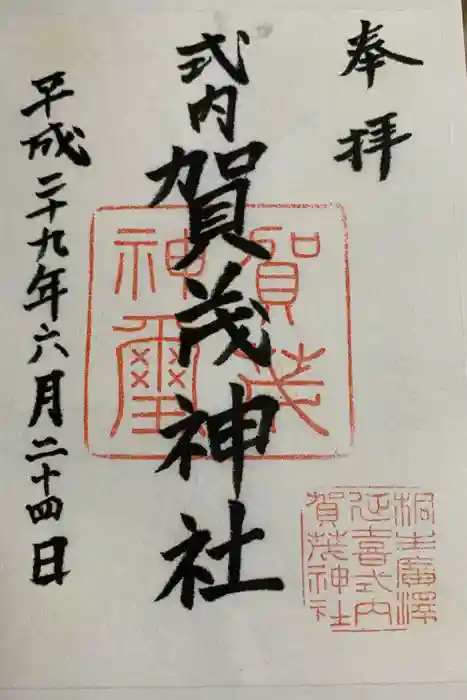 奉拝
式内賀茂神社
平成二十九年六月二十四日
賀茂
神璽
桐生廣澤
延喜式内
賀茂神社